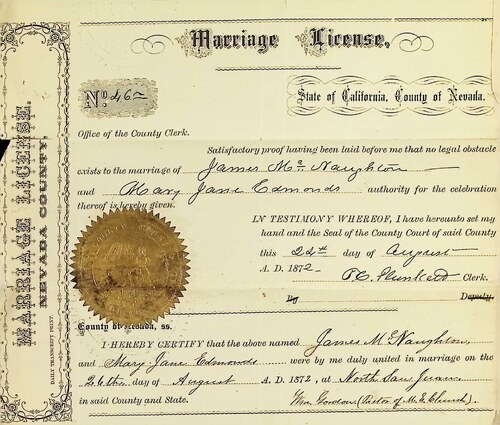 Marriage License,
No. 462
State of California, County of Nevada.
Office of the County Clerk.
Satisfactory proof having been laid before me that no legal obstacle
exists to the marriage of James McNaughton
and Mary Jane Edmonds authority for the celebration
thereof is hereby given.
IN TESTIMONY WHEREOF, I have hereunto set my
hand and the Seal of the County Court of said County
this 24th day of August
A. D. 1872
Clerk.
By Deputy.
County of Nevada, ss.
I HEREBY CERTIFY that the above named James McNaughton
and Mary Jane Edmonds were by me duly united in marriage on the
26th day of August A. D. 1872, at North San Juan
in said County and State. Wm. Gordon, (Rector of M. E. Church).
MARRIAGE LICENSE.
NEVADA COUNTY.
DAILY TRANSCRIPT PRINT.